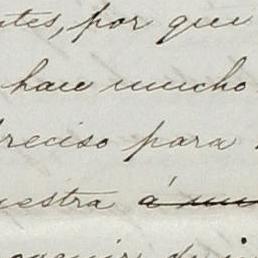 ntes, por que
hace mucho
preciso para
uestra á